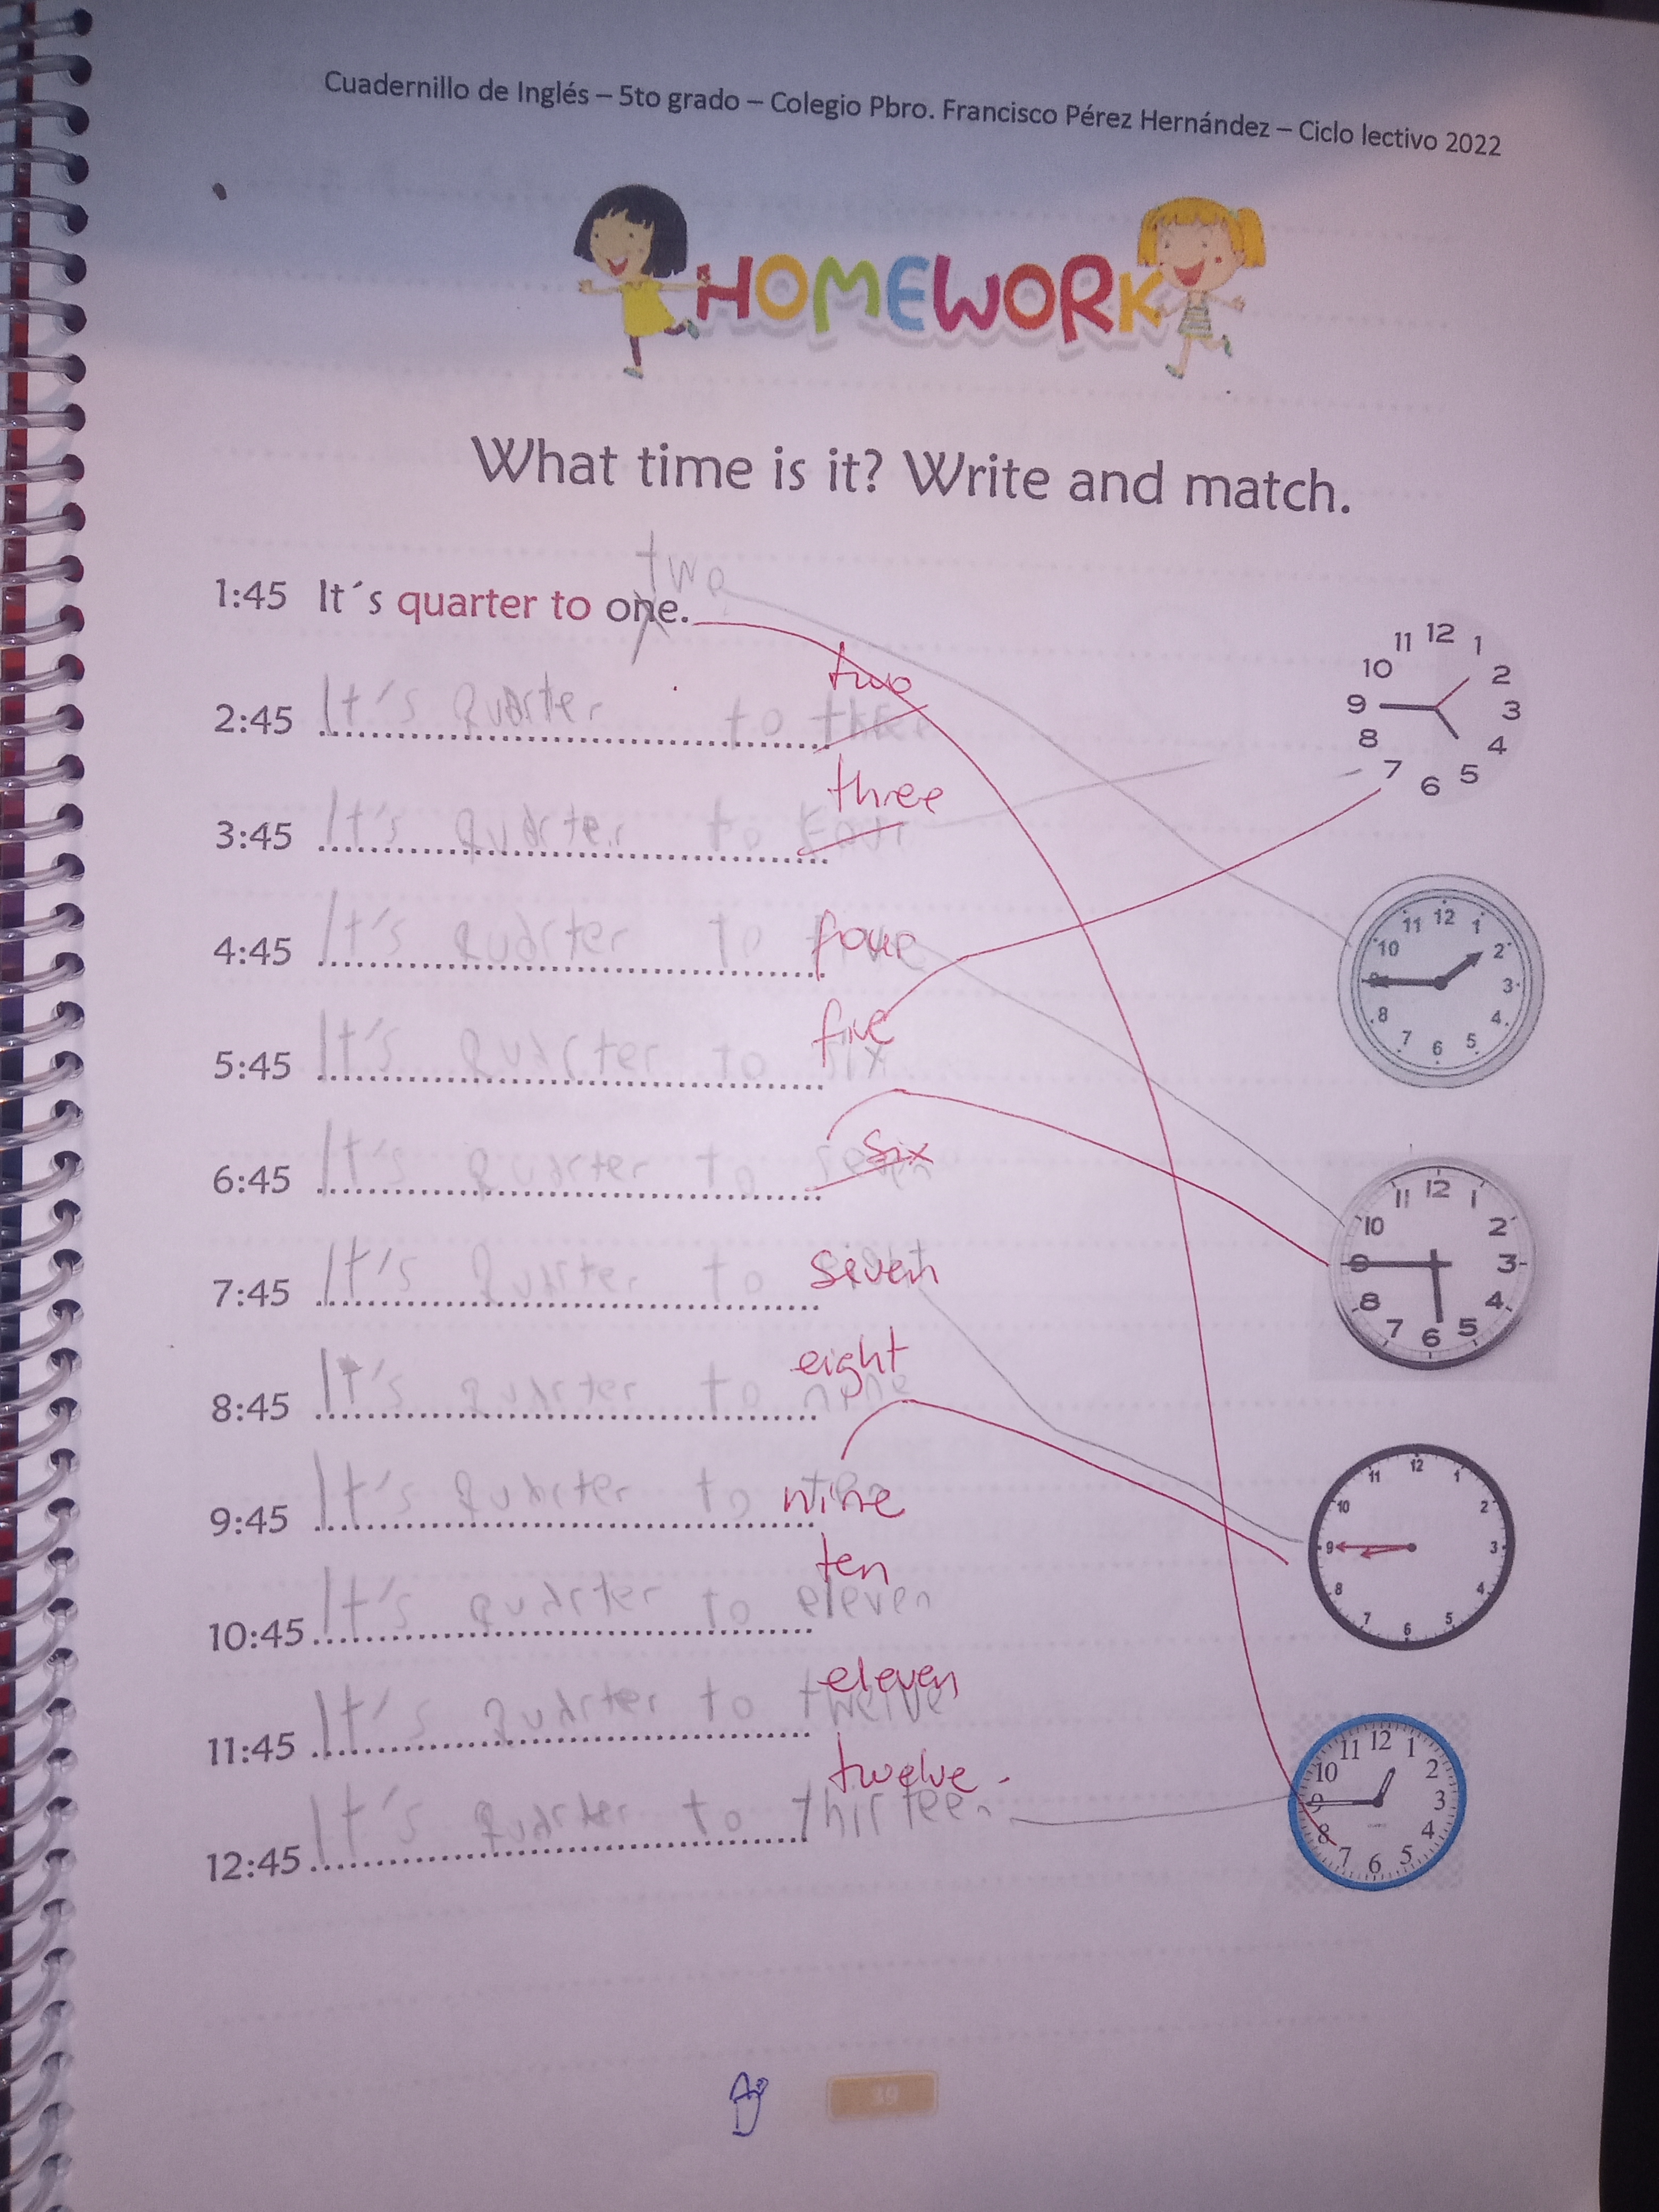 Cuadernillo de Inglés – 5to grado – Colegio Pbro. Francisco Pérez Hernández – Ciclo lectivo 2022
HOMEWORK
What time is it? Write and match.
two
1:45 It´s quarter to one.
two
2:45 It's quarter to
three
3:45 It's quarter to four
4:45 It's quarter to five four
five
5:45 It's quarter to six
six
6:45 It's quarter to seven
7:45 It's quarter to seven
eight
8:45 It's quarter to nine
9:45 It's quarter to nine
ten
10:45 It's quarter to eleven
eleven
11:45 It's quarter to twelve
twelve.
12:45 It's quarter to thirteen
12 1 2 3 4 5 6 7 8 9 10 11
12 1 2 3 4 5 6 7 8 9 10 11
12 1 2 3 4 5 6 7 8 9 10 11
12 1 2 3 4 5 6 7 8 9 10 11
12 1 2 3 4 5 6 7 8 9 10 11
39